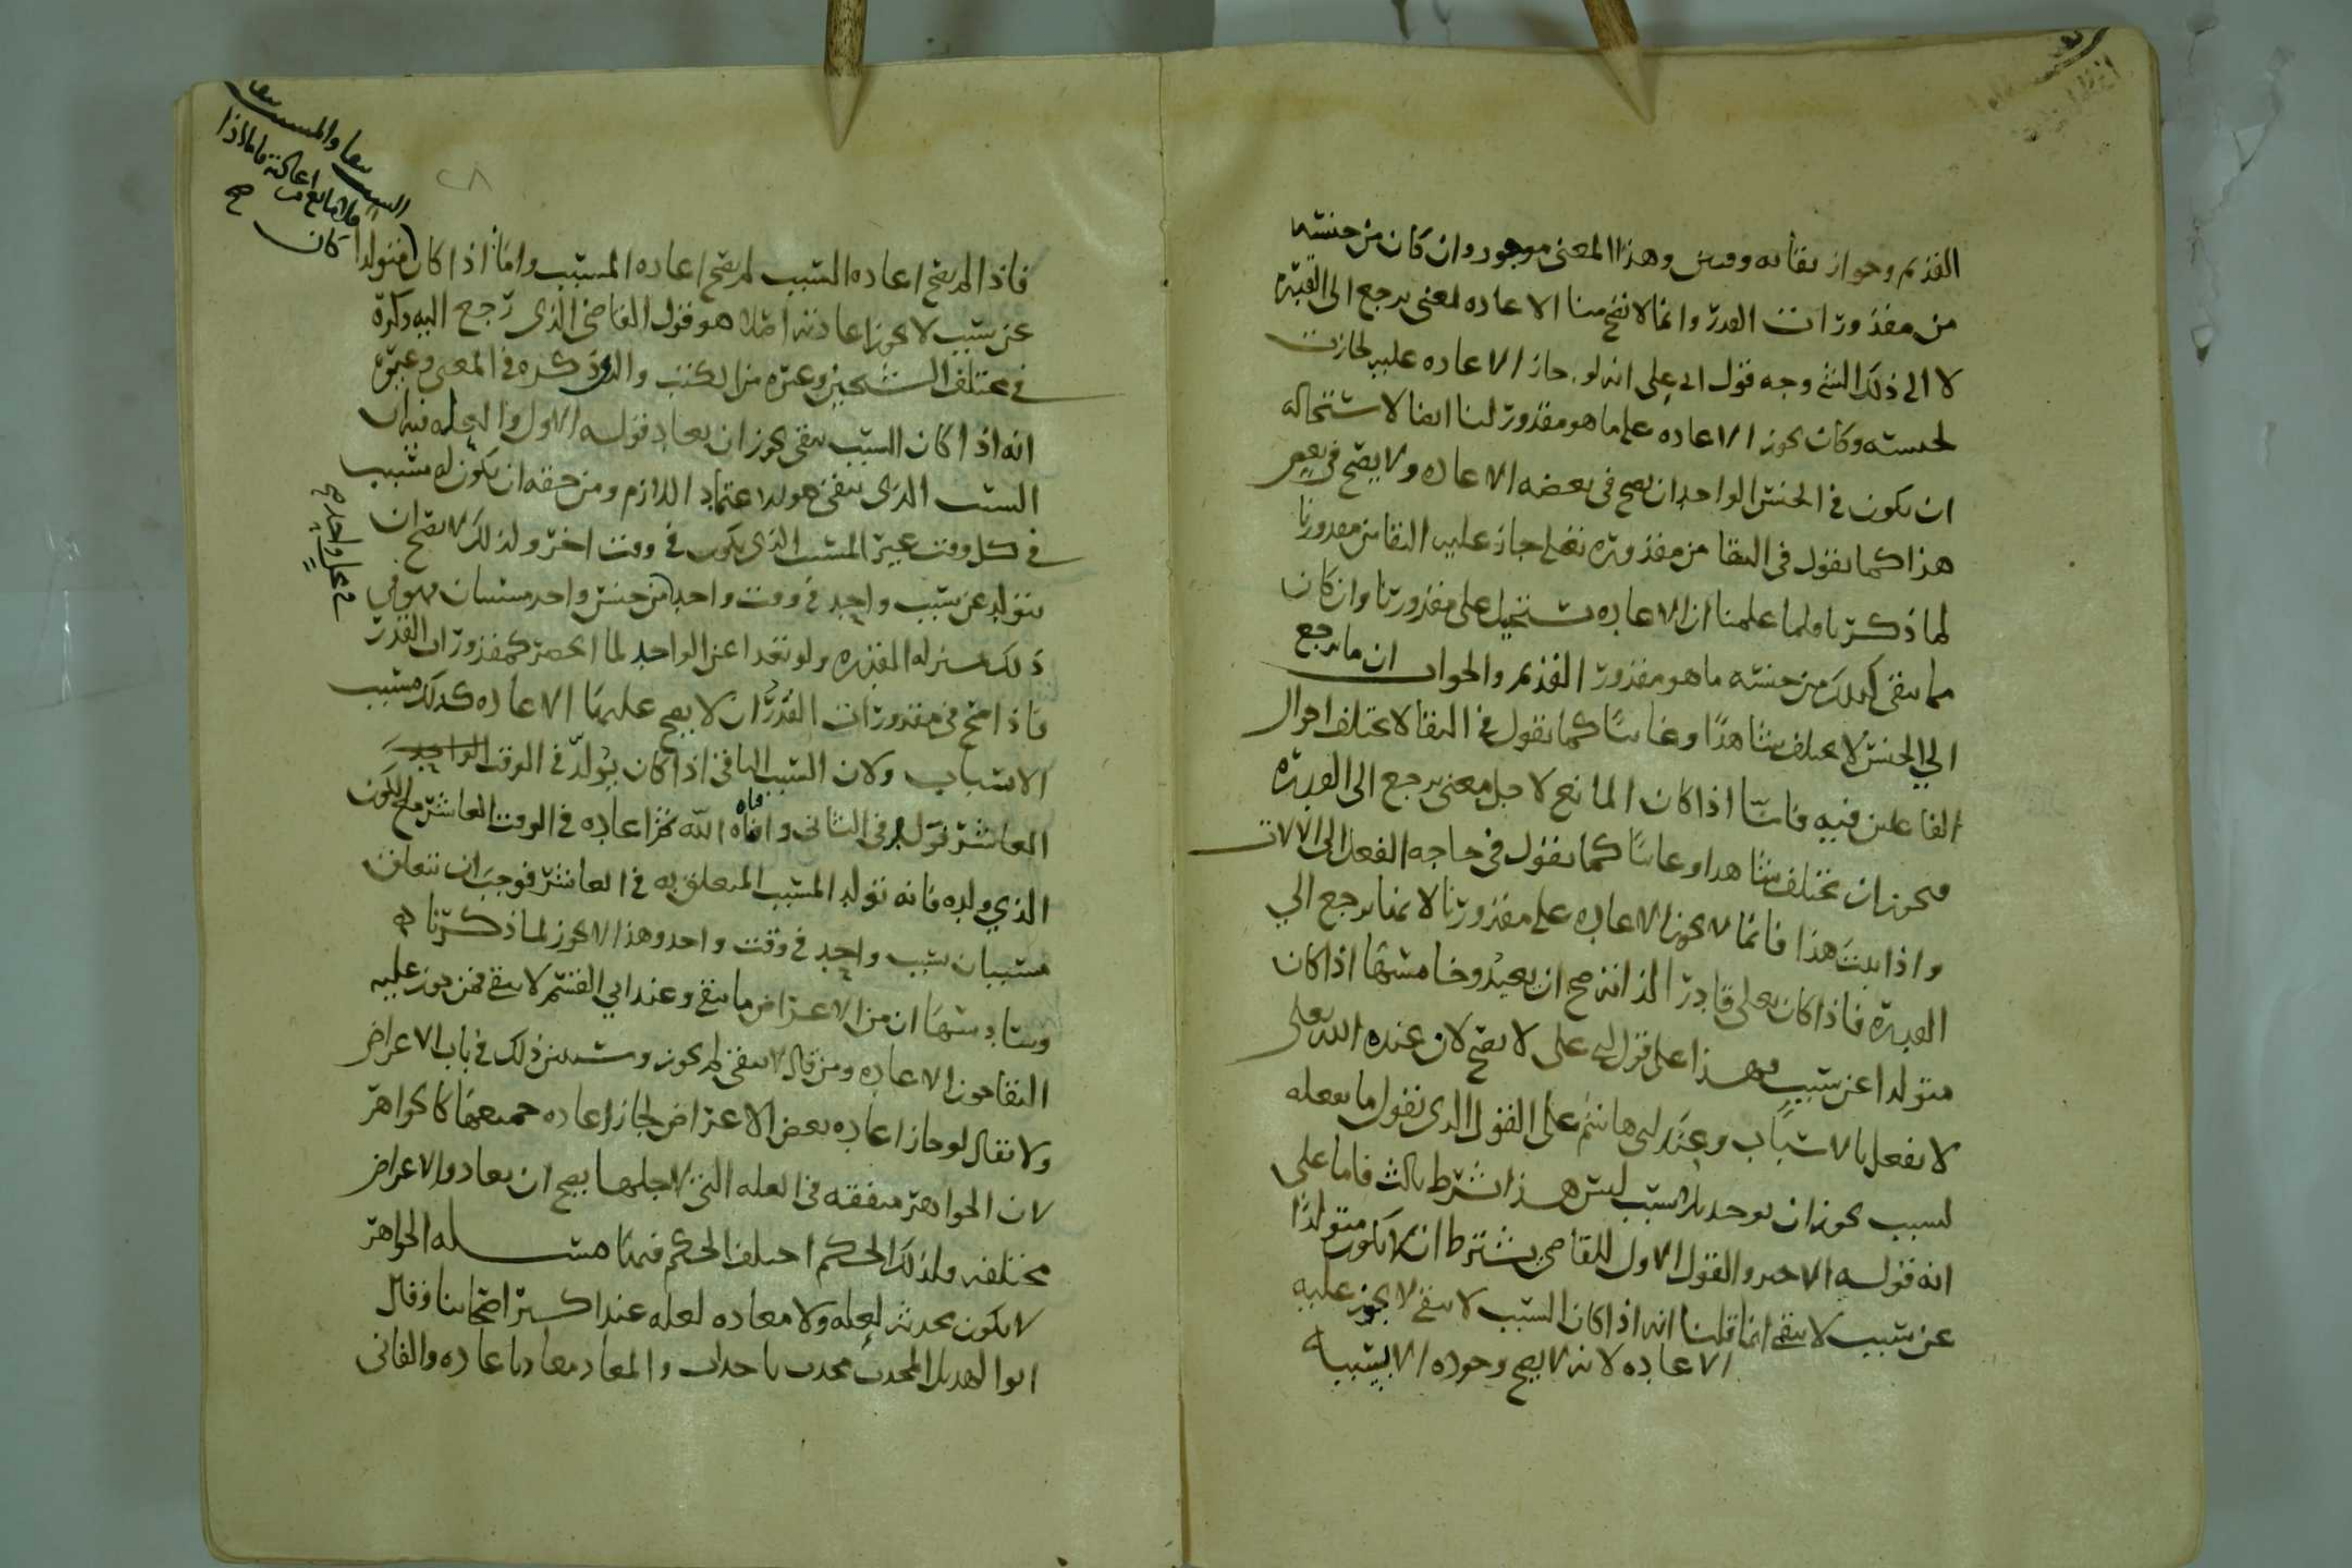 القديم وجواز بقائه وهذا المعنى موجود وان كان من جنسه
من مقدورات القدر وانما لا تصح منا الاعاده لمعنى يرجع الى القدره
لا الى ذلك الشي وجه قول ابي علي انه لو جاز الاعاده عليه لجازت
لجنسه وكان يجوز الاعاده على ما هو مقدور لنا ايضا لاستحاله
ان يكون في الجنس الواحد ان يصح في بعضه الاعاده ولا يصح في بعض
هذا كما نقول في البقا من مقدوره تعلى جاز عليه البقا من مقدورنا
لما ذكرنا ولما علمنا ان الاعاده تستحيل على مقدورنا وان كان
مما يبقى كذلك من جنسه ما هو مقدور القديم والجواب ان ما يرجع
الي الجنس لا يختلف شاهدا وغائبا كما نقول في البقا لا يختلف احوال
الفاعلين فيه فاما اذا كان المانع لاجل معنى يرجع الى القدره
فيجوز ان يختلف شاهدا وغائبا كما نقول في حاجه الفعل الى الالات
واذا ثبت هذا فانما لا يجوز الاعاده على مقدورنا لانها يرجع الي
القدره فاذا كان تعلى قادر لذاته صح ان يعيد وخامسها اذا كان
متولدا عن سبب فهذا على قول ابي على لا يصح لان عنده الله تعلى
لا يفعل بالاسباب وعند ابي هاشم على القول الذي يقول ما يفعله
لسبب يجوز ان يوجد بلا سبب ليس هذا شرط ثالث فاما على
انه قوله الاخير والقول الاول للقاضي يشترط ان لا يكون متولدا
عن سبب لا يبقى انما قلنا انه اذا كان السبب لا يبقى لا يجوز عليه
الاعاده لانه لا يصح وجوده الا بسببه
السبب
فلا مانع من اعادته فاما اذا
كان صح
٢٨
فاذا لم يصح اعاده السبب لم يصح اعاده المسبب واما اذا كان متولدا
عن سبب لا يجوز اعادته اصلا هو قول القاضي الذي رجع اليه وذكره
في مختلف الشيخين وغيره من الكتب والذي ذكره في المعنى وغيره
انه اذا كان السبب يبقى يجوز ان يعاد قوله الاول والعله فيه ان
السبب الذي يبقى هو الاعتماد اللازم ومن حقه ان يكون له مسبب
في كل وقت غير المسبب الذي يكون في وقت اخر ولذلك لا يصح ان
يتولد عن سبب واحد في وقت واحد من جنس واحد مسببان فهو في
في محل واحد صح
ذلك بمنزله القدره ولو تعدا عن الواحد لما انحصر كمقدورات القدر
فاذا صح في مقدورات القدر ان لا يصح عليها الاعاده كذلك مسبب
الاسباب ولان السبب الباقي اذا كان يولد في الوقت
العاشر في الثاني وافناه الله ثم اعاده في الوقت العاشر مع الكون
الذي ولده فانه تولد المسبب المتعلق به في العاشر فوجب ان يتعلق
مسببان بسبب واحد في وقت واحد وهذا لا يجوز لما ذكرنا
وسادسها ان من الاعراض ما يبقى وعند ابي القسم لا يبقى فمن جوز عليه
البقا جوز الاعاده ومن قال لا يبقى لم يجوز وسنبين ذلك في باب الاعراض
ولا يقال لو جاز اعاده بعض الاعراض لجاز اعاده جميعها كالجواهر
لان الجواهر متفقه في العله التي لاجلها يصح ان يعاد والاعراض
مختلفه ولذلك الحكم اختلف الحكم فيها مسله الجواهر
لا يكون محدثه لعله ولا معاده لعله عند اكثر اصحابنا وقال
ابو الهذيل المحدث محدث باحداث والمعاد معاد باعاده والفاني